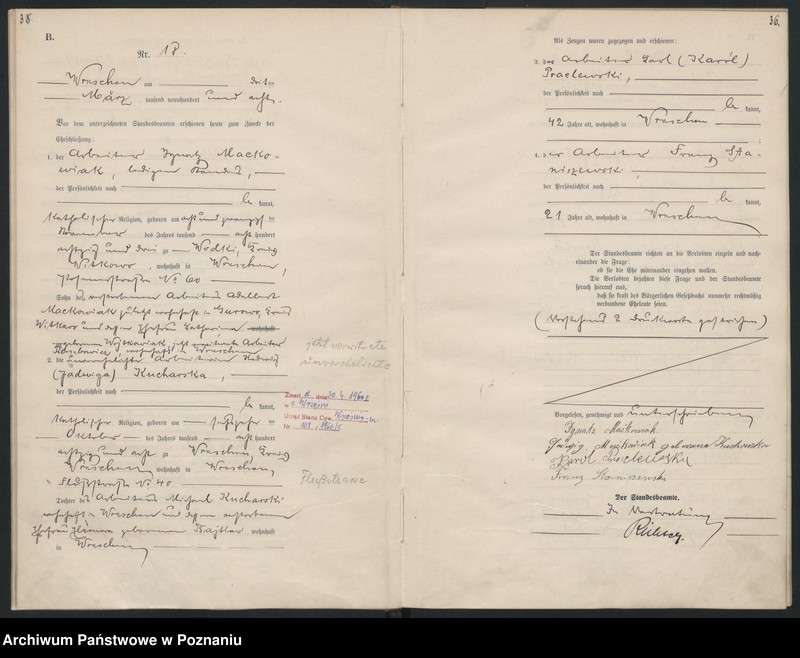 38
B.
Nr. 18.
Wreschen am dritten
März tausend neunhundert und acht.
Vor dem unterzeichneten Standesbeamten erschienen heute zum Zwecke der
Eheschließung:
1. der Arbeiter Ignatz Macko-
wiak, ledigen Standes,
der Persönlichkeit nach
be kannt,
katholischer Religion, geboren am acht und zwanzigsten
November des Jahres tausend acht hundert
achtzig und drei zu Wodki, Kreis
Witkowo, wohnhaft in Wreschen,
Posenerstraße No 60
Sohn des verstorbenen Arbeiters Adalbert
Mackowiak zuletzt wohnhaft in Gurowo, Kreis
Witkowo und dessen Ehefrau Katharina wohnhaft
geborenen Wojtkowiak, jetzt
wohnhaft in Wreschen
2. die unverehelichte Arbeiterin Hedwig
(Jadwiga) Kucharska,
der Persönlichkeit nach
be kannt,
katholischer Religion, geboren am
Oktober des Jahres tausend acht hundert
achtzig und acht zu Wreschen, Kreis
Wreschen, wohnhaft in Wreschen,
Floßstraße No 40
Tochter des Arbeiters Michael Kucharski
wohnhaft in Wreschen und dessen verstorbenen
Ehefrau geborenen wohnhaft
in Wreschen
jetzt verwitwete
Zmarł a dnia 30.4.1960 r
w
Urząd Stanu Cyw.
Nr
36.
Als Zeugen waren zugezogen und erschienen:
3. der Arbeiter Karl (Karól)
Praclewski,
der Persönlichkeit nach
be kannt,
42 Jahre alt, wohnhaft in Wreschen
4. der Arbeiter Franz Sta-
niszewski,
der Persönlichkeit nach
be kannt,
21 Jahre alt, wohnhaft in Wreschen
Der Standesbeamte richtete an die Verlobten einzeln und nach-
einander die Frage:
ob sie die Ehe miteinander eingehen wollen.
Die Verlobten bejahten diese Frage und der Standesbeamte
sprach hierauf aus,
daß sie kraft des Bürgerlichen Gesetzbuchs nunmehr rechtmäßig
verbundene Eheleute seien.
(Vorstehend 2 Druckworte gestrichen)
Vorgelesen, genehmigt und unterschrieben
Ignatz Maćkowiak
Jadwiga Maćkowiak geborene Kucharska
Karol
Franz Staniszewski
Der Standesbeamte.
In Vertretung
Archiwum Państwowe w Poznaniu